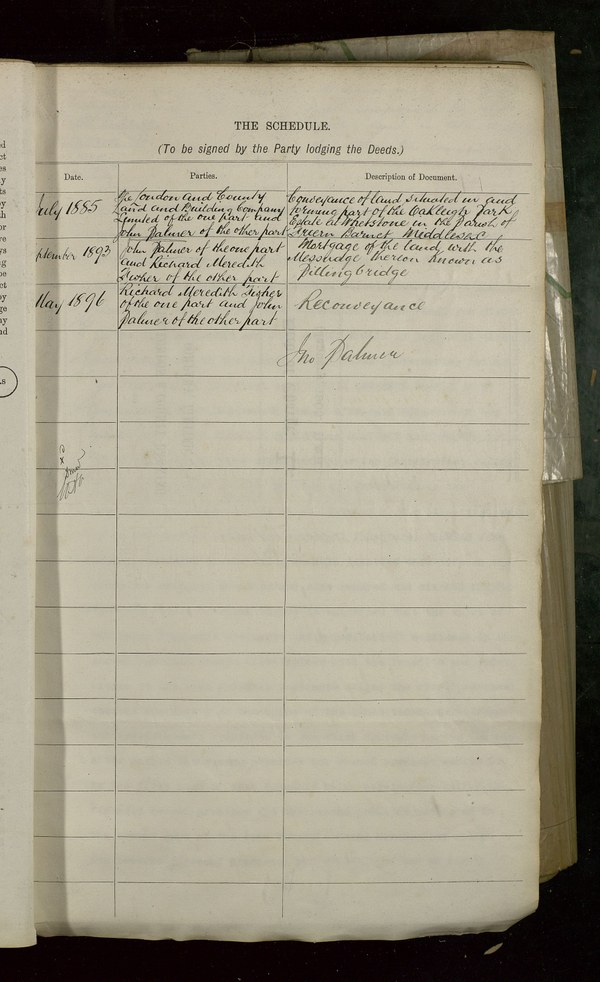 THE SCHEDULE.
(To be signed by the Party lodging the Deeds.)
Date.
Parties.
Description of Document.
July 1885
The London and County
Land and Building Company
Limited of the one part and
John Palmer of the other part
Conveyance of land situated in and
forming part of the Oakleigh Park
Estate at Whetstone in the Parish of
Friern Barnet, Middlesex
ptember 1893
John Palmer of the one part
and Richard Meredith
Fisher of the other part
Mortgage of the land with the
Messuage thereon known as
Pillingbridge
May 1896
Richard Meredith Fisher
of the one part and John
Palmer of the other part
Reconveyance
Jno Palmer